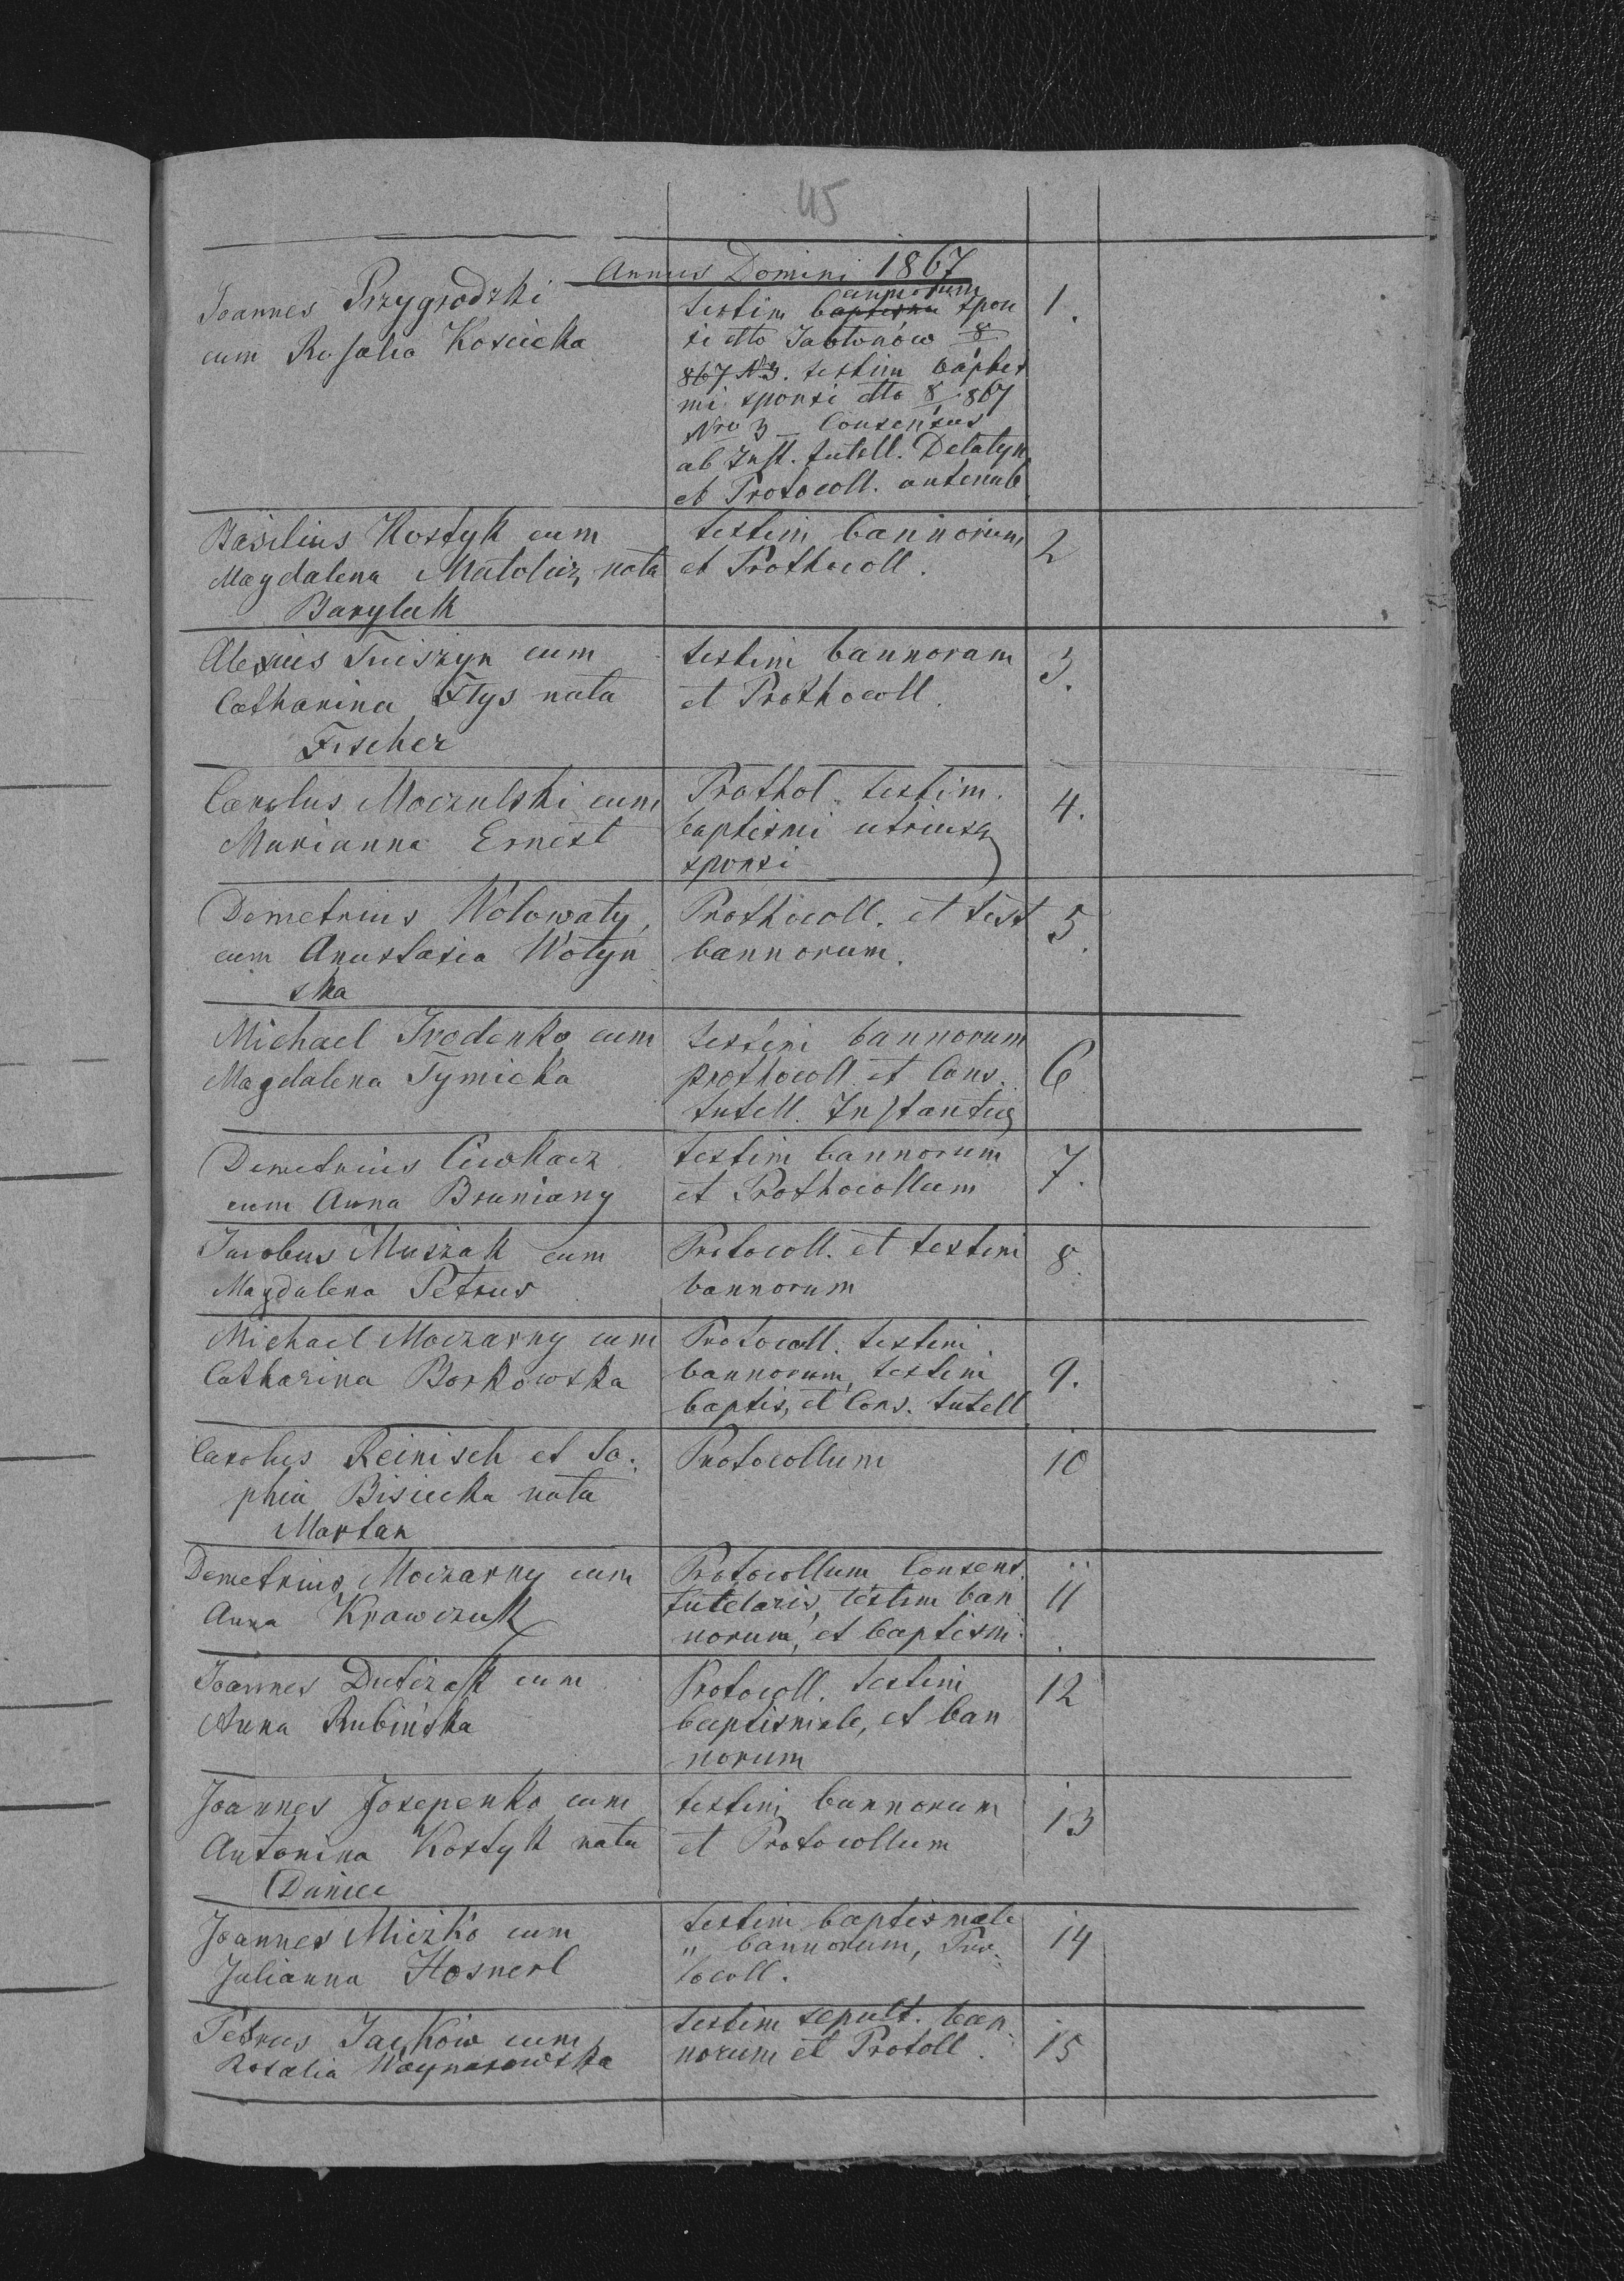 45
Annus Domini 1867
Joannes Przygrodzki
cum Rosalia Koscicka
testim baptismi annorum spon
si dtto Jabłonów 8/
867 N 3. testim baptis
mi sponsi dtto 8/ 867
Nro 3 Consensus
ab Inst. tutell. Delatyn
et Protocoll. antenub
1.
Basilius Kostyk cum
Magdalena Matolicz nata
Barylak
testim bannorum
et Prothocoll.
2
Alexius cum
Catharina Flys nata
Fischer
testim bannorum
et Prothocoll.
3.
Carolus Moczulski cum
Marianna Ernest
Prothol. testim.
baptismi utriusq
sponsi
4.
Demetrius Wołowaty
cum Anastasia Wołyn
ska
Prothocoll. et test
bannorum.
5.
Michael Irodenko cum
Magdalena Tymicka
testim bannorum
prothocoll et Cons.
tutell. Instantia
6
Demetrius Ciwkacz
cum Anna Bruniany
testim bannorum
et Prothocollum
7.
Jacobus Muszak cum
Magdalena Petrus
Protocoll. et testim
bannorum
8.
Michael Moczarny cum
Catharina Borkowska
Protocoll. testim
bannorum, testim
baptis, et Cons. tutell
9.
Carolus Reinisch et So
phia Bisiecka nata
Martan
Protocollum
10
Demetrius Moczarny cum
Anna Krawczuk
Protocollum Consens.
tutelaris, testim ban
norum, et baptismi
11
Joannes Dutczak cum
Anna Rubińska
Protocoll. testim
baptismale, et ban
norum
12
Joannes Josepenko cum
Antonina Kostyk nata
Daniec
testim bannorum
et Protocollum
13
Joannes Miczko cum
Julianna Hosnerl
testim baptismale
" bannorum, Pro
tocoll.
14
Petrus Jacków cum
Rosalia Woynarowska
testim sepult. ban
norum et Protoll.
15